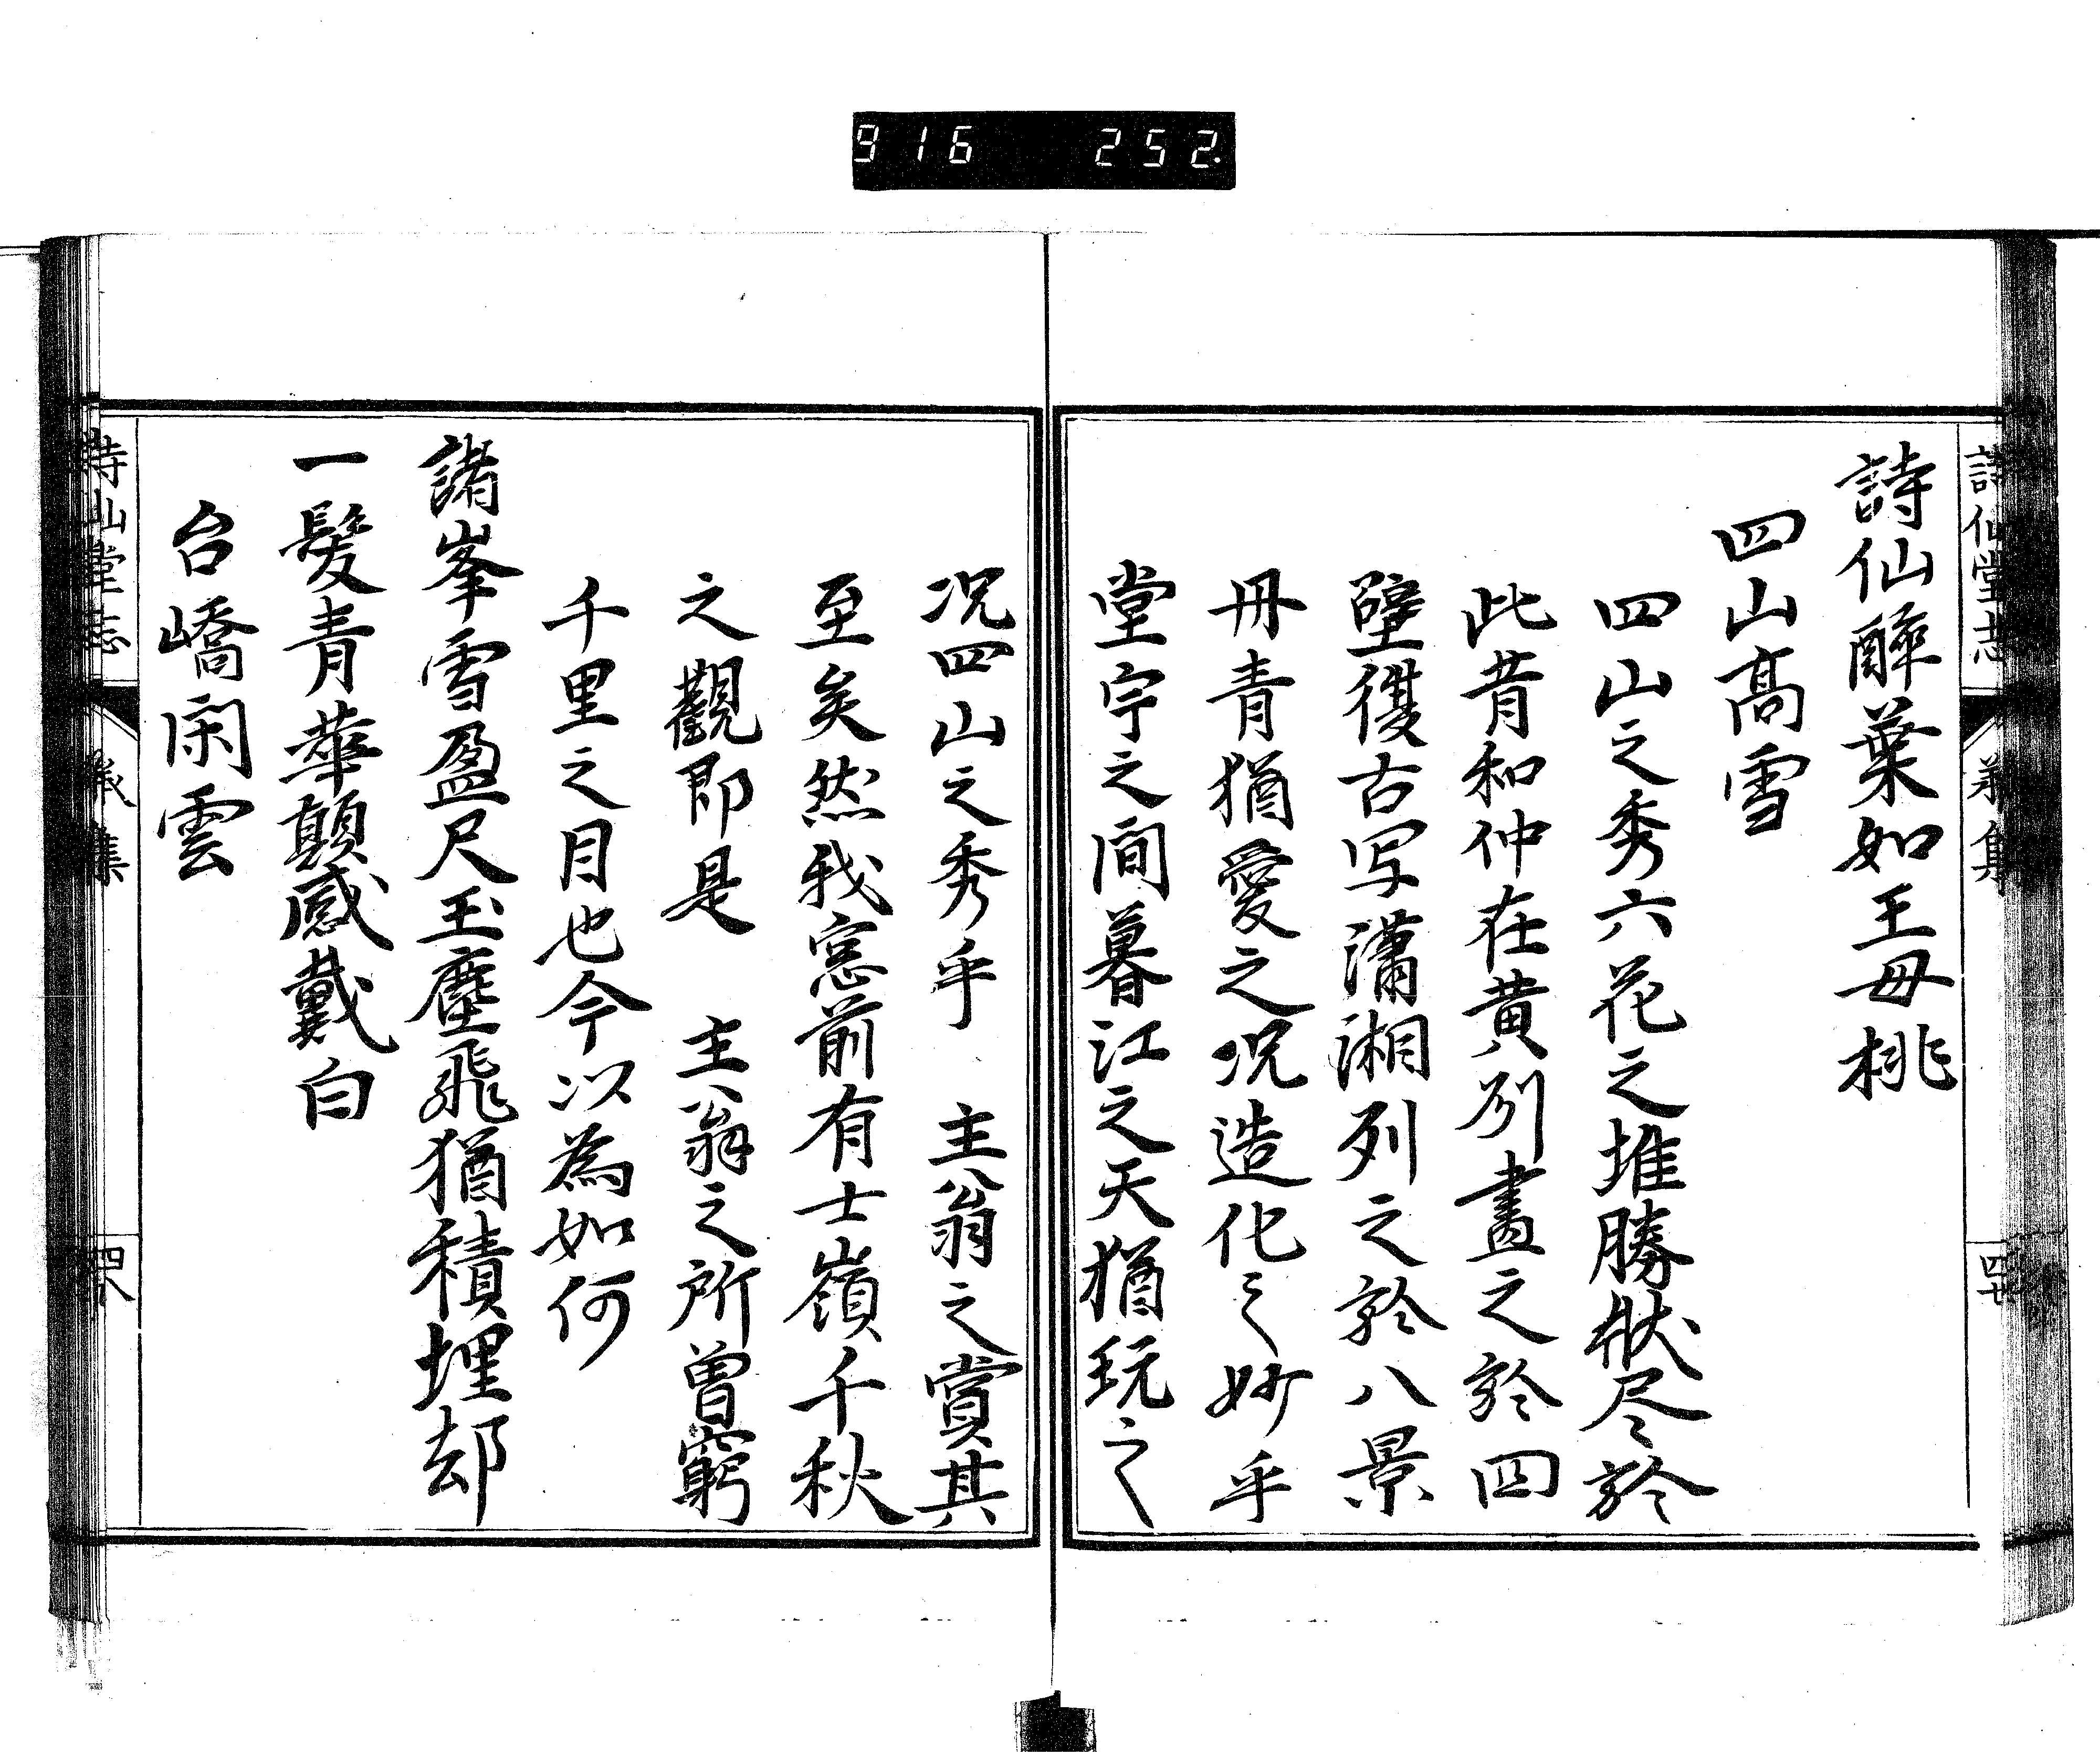 916 252.
詩仙堂志 義集 四七
詩仙醉葉如王母桃
四山髙雪
四山之秀六花之堆勝狀尽於
此昔和仲在黄列畫之於四
壁復古写瀟湘列之於八景
丹青猶愛之况造化之妙乎
堂宇之間暮江之天猶玩之
况四山之秀乎　主翁之賞其
至矣然我窓前有士嶺千秋
之觀即是　主翁之所曽窮
千里之目也今以為如何
諸峯雪盈尺玉塵飛猶積埋却
一髮青華顛感戴白
台嶠閑雲
詩仙堂志 義集 四八